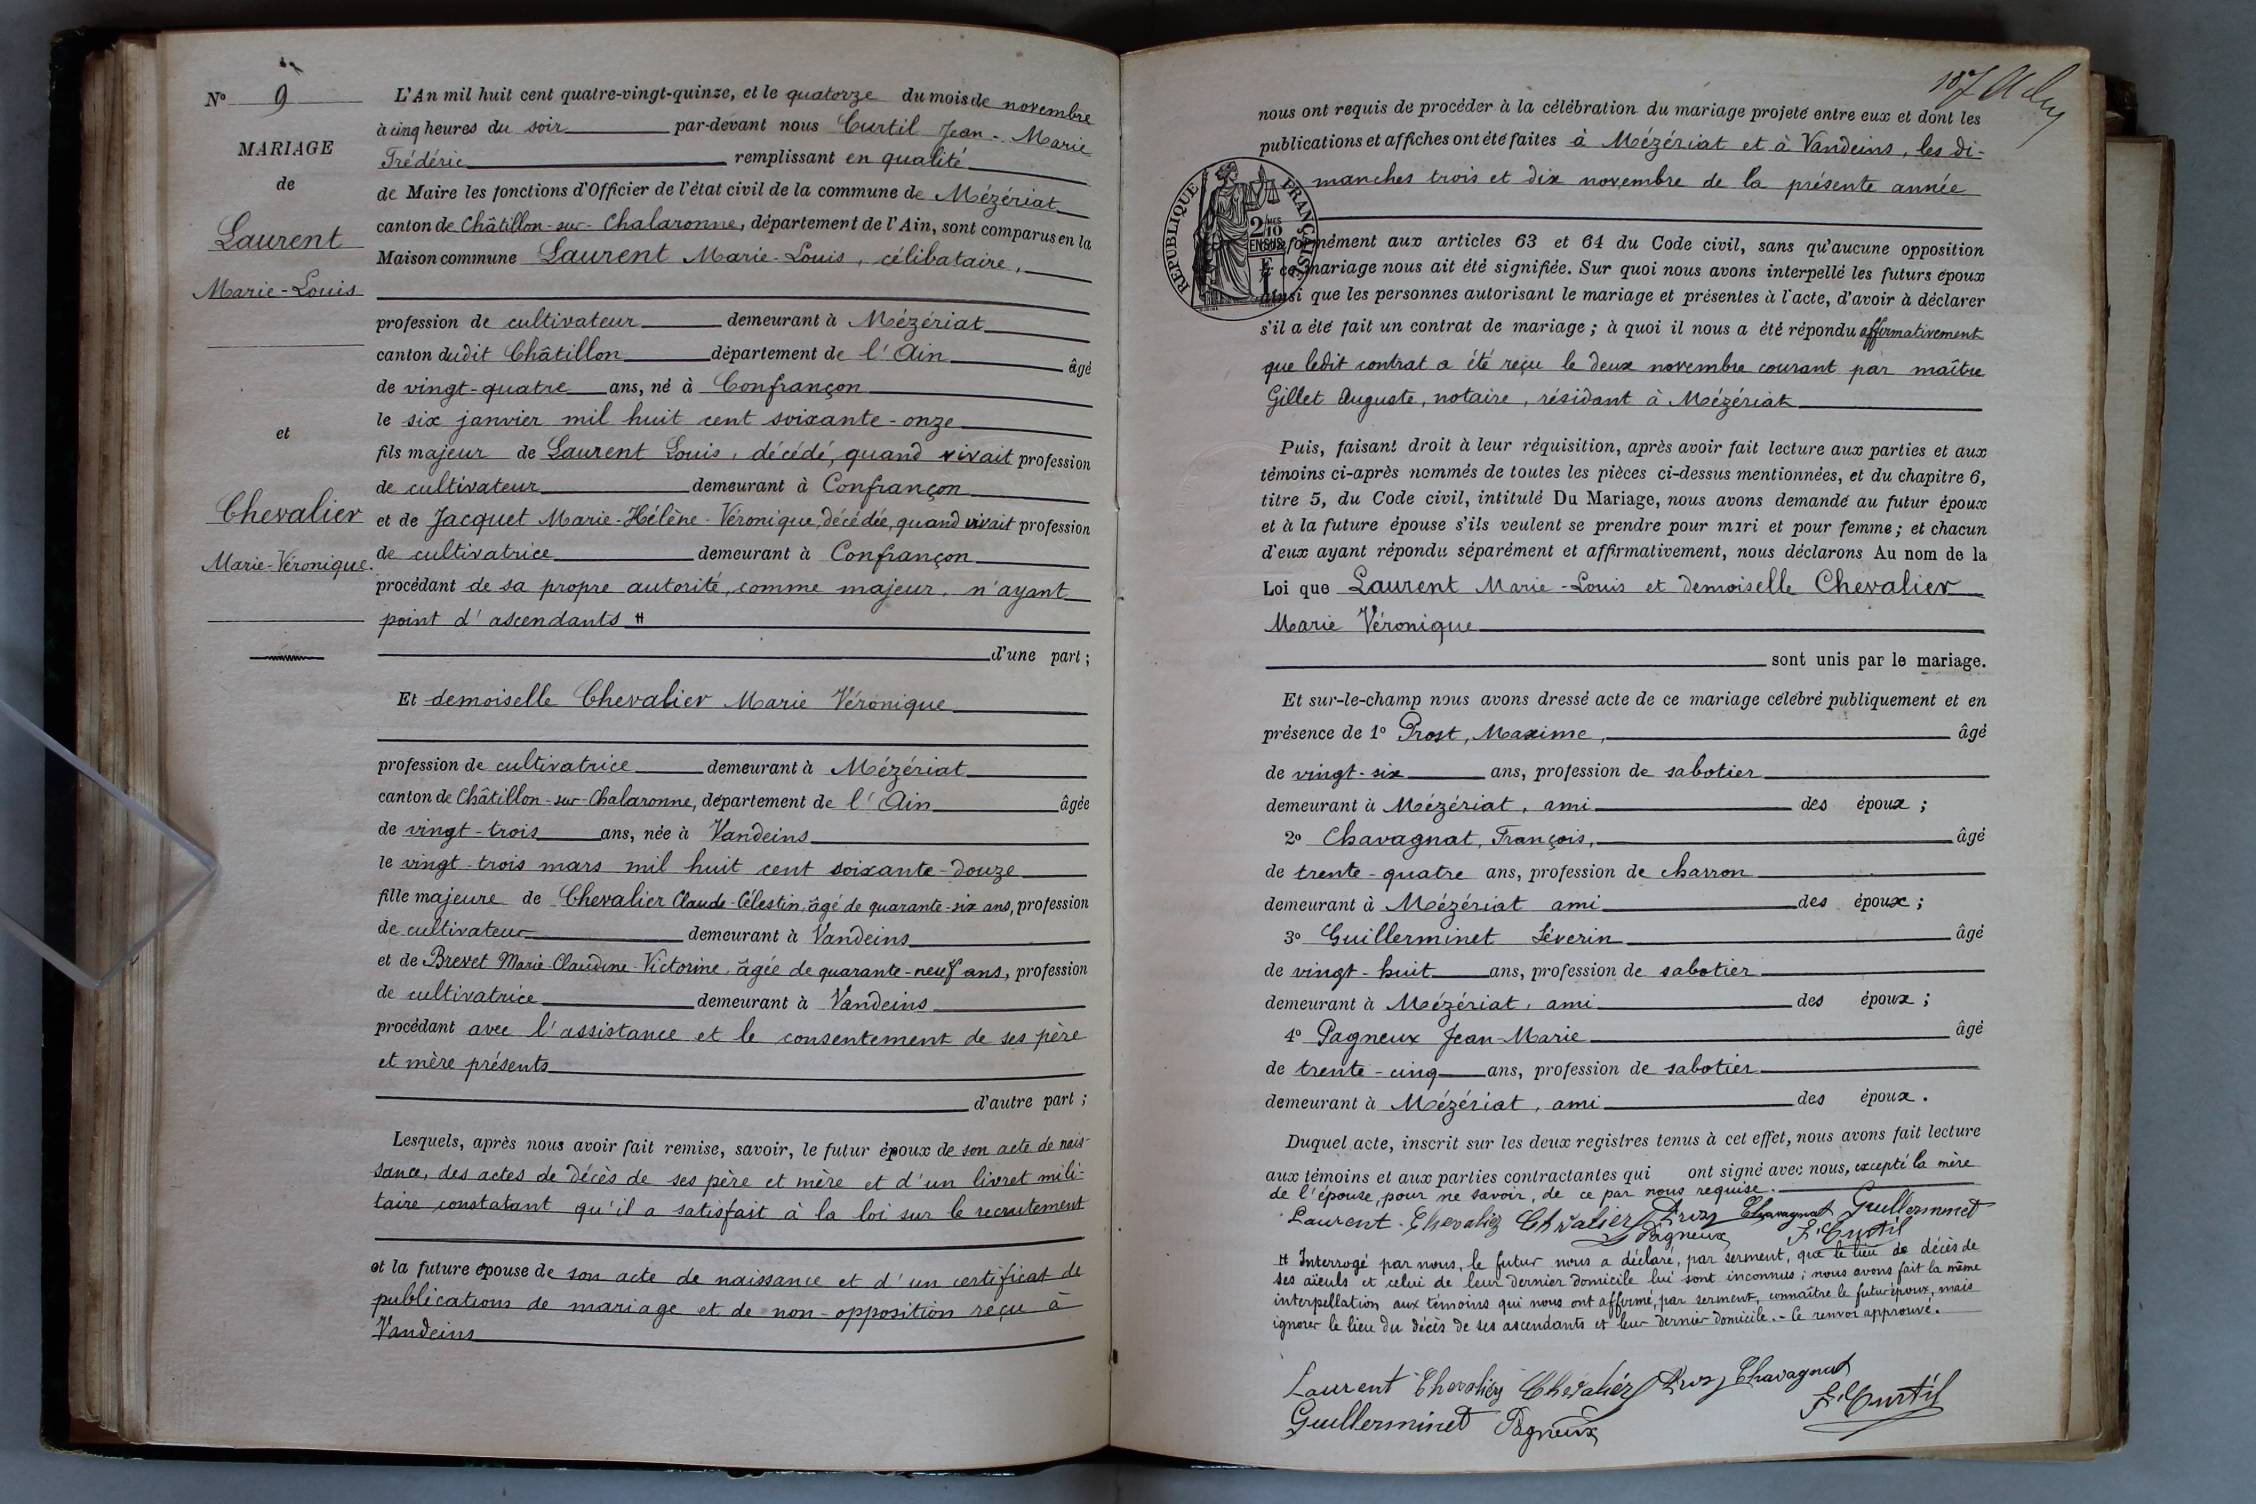 N° 9
MARIAGE
de
Laurent
Marie-Louis
et
Chevalier
Marie-Véronique.
L'An mil huit cent quatre-vingt-quinze, et le quatorze du mois de novembre
à cinq heures du soir par-devant nous Curtil Jean-Marie
Frédéric remplissant en qualité
de Maire les fonctions d'Officier de l'état civil de la commune de Mézériat
canton de Châtillon-sur-Chalaronne, département de l'Ain, sont comparus en la
Maison commune Laurent Marie-Louis, célibataire,
profession de cultivateur demeurant à Mézériat
canton dudit Châtillon département de l'Ain âgé
de vingt-quatre ans, né à Confrançon
le six janvier mil huit cent soixante-onze
fils majeur de Laurent Louis, décédé, quand vivait profession
de cultivateur demeurant à Confrançon
et de Jacquet Marie-Hélène-Véronique, décédée, quand vivait profession
de cultivatrice demeurant à Confrançon
procédant de sa propre autorité, comme majeur, n'ayant
point d'ascendants #
d'une part ;
Et demoiselle Chevalier Marie Véronique
profession de cultivatrice demeurant à Mézériat
canton de Châtillon-sur-Chalaronne, département de l'Ain âgée
de vingt-trois ans, née à Vandeins
le vingt-trois mars mil huit cent soixante-douze
fille majeure de Chevalier Claude-Célestin, âgé de quarante-six ans, profession
de cultivateur demeurant à Vandeins
et de Brevet Marie-Claudine-Victorine, âgée de quarante-neuf ans, profession
de cultivatrice demeurant à Vandeins
procédant avec l'assistance et le consentement de ses père
et mère présents
d'autre part ;
Lesquels, après nous avoir fait remise, savoir, le futur époux de son acte de nais-
sance, des actes de décès de ses père et mère et d'un livret mili-
taire constatant qu'il a satisfait à la loi sur le recrutement
et la future épouse de son acte de naissance et d'un certificat de
publications de mariage et de non-opposition reçu à
Vandeins
107
nous ont requis de procéder à la célébration du mariage projeté entre eux et dont les
publications et affiches ont été faites à Mézériat et à Vandeins, les di-
manches trois et dix novembre de la présente année
RÉPUBLIQUE FRANÇAISE
2/10 MES
EN SUS
formément aux articles 63 et 64 du Code civil, sans qu'aucune opposition
ce mariage nous ait été signifiée. Sur quoi nous avons interpellé les futurs époux
ainsi que les personnes autorisant le mariage et présentes à l'acte, d'avoir à déclarer
s'il a été fait un contrat de mariage ; à quoi il nous a été répondu affirmativement
que ledit contrat a été reçu le deux novembre courant par maître
Gillet Auguste, notaire, résidant à Mézériat
Puis, faisant droit à leur réquisition, après avoir fait lecture aux parties et aux
témoins ci-après nommés de toutes les pièces ci-dessus mentionnées, et du chapitre 6,
titre 5, du Code civil, intitulé Du Mariage, nous avons demandé au futur époux
et à la future épouse s'ils veulent se prendre pour mari et pour femme ; et chacun
d'eux ayant répondu séparément et affirmativement, nous déclarons Au nom de la
Loi que Laurent Marie-Louis et demoiselle Chevalier
Marie Véronique
sont unis par le mariage.
Et sur-le-champ nous avons dressé acte de ce mariage célébré publiquement et en
présence de 1° Prost, Maxime, âgé
de vingt-six ans, profession de sabotier
demeurant à Mézériat, ami des époux ;
2° Chavagnat, François, âgé
de trente-quatre ans, profession de charron
demeurant à Mézériat ami des époux ;
3° Guillerminet Séverin âgé
de vingt-huit ans, profession de sabotier
demeurant à Mézériat, ami des époux ;
4° Pagneux Jean-Marie âgé
de trente-cinq ans, profession de sabotier
demeurant à Mézériat, ami des époux.
Duquel acte, inscrit sur les deux registres tenus à cet effet, nous avons fait lecture
aux témoins et aux parties contractantes qui ont signé avec nous, excepté la mère
de l'épouse, pour ne savoir, de ce par nous requise.
Laurent Chevalier Chevalier Chavagnat Guillerminet
Pagneux F. Curtil
# Interrogé par nous, le futur nous a déclaré, par serment, que le lieu de décès de
ses aïeuls et celui de leur dernier domicile lui sont inconnus ; nous avons fait la même
interpellation aux témoins qui nous ont affirmé, par serment, connaître le futur époux, mais
ignorer le lieu du décès de ses ascendants et leur dernier domicile. - Ce renvoi approuvé.
Laurent Chevalier Chevalier Chavagnat
Guillerminet Pagneux F. Curtil